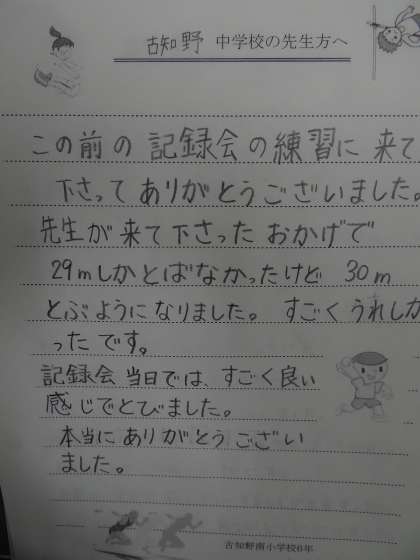 古知野 中学校の先生方へ
この前の記録会の練習に来て
下さってありがとうございました。
先生が来て下さったおかげで
29mしかとばなかったけど 30m
とぶようになりました。すごくうれしか
ったです。
記録会当日では、すごく良い
感じでとびました。
本当にありがとうござい
ました。
古知野南小学校6年